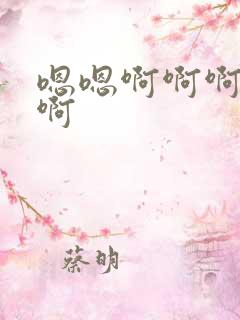 嗯嗯啊啊啊
啊
蔡明